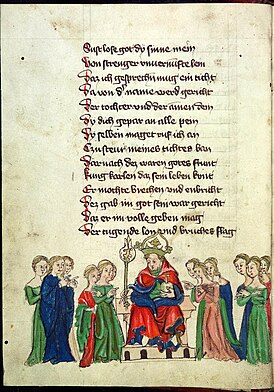 Sust lose got dy sinne mein
Von strenger unvernufte hen
Daz ich gesprechen mug ein ticht
Da von dyn name werd gericht
Der tochter und der amen den
Dy dich gepar an alle pen
Dy selben maget ruf ich an
Czu steur meines tichtes ban
Dar nach der waren gotes frunt
King karlen daz sein leben kunt
Er mochte brechen und enbricht
Dez gab im got sein war gericht
Daz er im volle geben mag
Der tugende lon und bruches slag